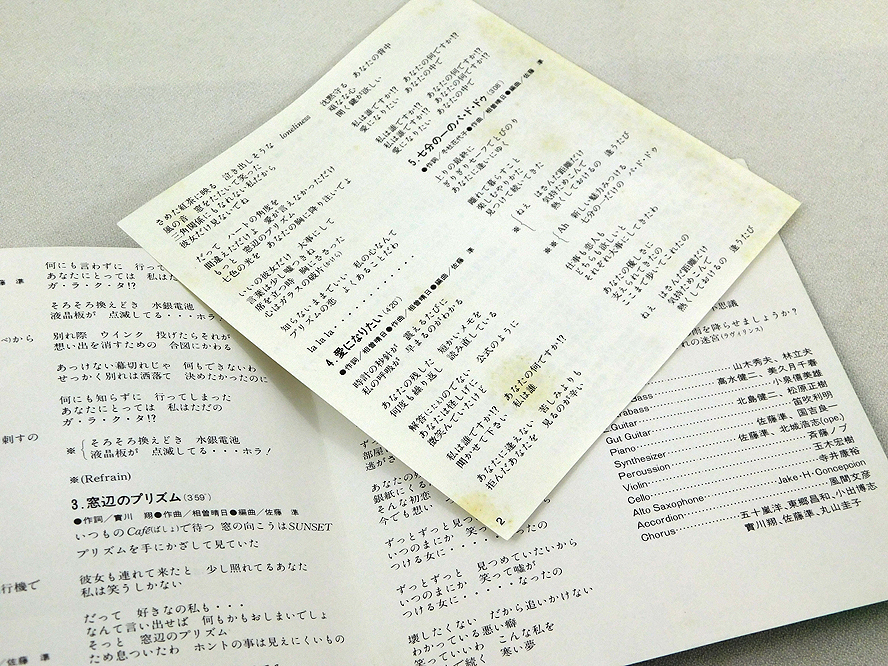 何にも言わずに 行って
あなたにとっては 私は
ガ・ラ・ク・タ!?
そろそろ換えどき 水銀電池
液晶板が 点滅してる・・・ホラ
別れ際 ウインク 投げたらそれが
想い出を消すための 合図にかわる
あっけない幕切れじゃ 何もできないわ
せっかく別れは洒落て 決めたかったのに
何にも知らずに 行ってしまった
あなたにとっては 私はただの
ガ・ラ・ク・タ!?
※ そろそろ換えどき 水銀電池
液晶板が 点滅してる・・・ホラ!
※(Refrain)
3.窓辺のプリズム(3′59″)
●作詞/實川 翔●作曲/相曽晴日●編曲/佐藤 準
いつものCafé(ばしょ)で待つ 窓の向こうはSUNSET
プリズムを手にかざして見ていた
彼女も連れて来たと 少し照れてるあなた
私は笑うしかない
だって 好きなの私も・・・
なんて言い出せば 何もかもおしまいでしょ
そっと 窓辺のプリズム
ため息ついたわ ホントの事は見えにくいもの
さめた紅茶に映る 泣き出しそうな loneliness
風の音 窓をたたいて笑った
三角関係にもなれない私だから
彼女だけ見ないでね
だって ハートの角度を
間違えただけよ 愛が言えなかっただけ
もっと 窓辺のプリズム
七色の光を あなたの胸に降り注いでよ
いいの彼女だけ 大事にして
言葉は少し嘘つきね 私の心なんて
席を立つ時 胸にささった
心はガラスの破片(かけら)
知らないままでいい
プリズムの恋 よくあることだわ
la la la・・・・・・・・・
4.愛になりたい(4′20″)
●作詞/相曽晴日●作曲/相曽晴日●編曲/佐藤 準
時計の秒針が 震えるたびに
私の呼吸が 早まるのがわかる
あなたの残した 短かいメモを
何度も繰り返し 読み直している
解答にいのてない 公式のように
あなたは怪しげに
微笑んでいたけど
私は誰ですか!? あなたの何ですか!?
聞かせて下さい 私は誰
あなたに逢えない 苦しみよりも
拒んだあなたを 見るのが辛い
沈黙守る あなたの背中
頑なな心
開く鍵が欲しい
私は誰ですか!? あなたの何ですか!?
愛になりたい あなたの中で
私は誰ですか!? あなたの何ですか!?
私は誰ですか!? あなたの何ですか!?
愛になりたい あなたの中で
5.七分の一のパ・ド・ドゥ(3′08″)
●作詞/冬杜花代子●作曲/相曽晴日●編曲/佐藤 準
上りの最終に
ぎりぎりセーフでとびのり
あなたに逢いにゆく
離れて暮らすこと
楽しむやすかた
見つけて続いてきた
※ ねえ はさんだ距離だけ
気持ちためこんで
熱くしておけるの 逢うたび
※※ Ah 新しい魅力みつける
七分の一だけの パ・ド・ドゥ
仕事も恋人も
どちらも欲しいと
それぞれ大事にしてきたわ
あなたの優しさに
支えられてきたの
ここまで歩いてこれたの
ねえ はさんだ距離だけ
気持ちためこんで
熱くしておけるの 逢うたび
2
ずっとずっと 見つめていたいから
いつのまにか 笑って嘘が
つける女に・・・・・なったの
壊したくない だから追いかけない
わかっている悪い癖
笑っていいわ こんな私を
寒い夢
山木秀夫、林立夫
高水健二、美久月千春
小泉信美雄
北島健二、松原正樹
E.Guitar 笛吹利明
Gut Guitar 佐藤準、国吉良一
Piano 佐藤準、北城浩志(ope.)
Synthesizer 斉藤ノブ
Percussion 玉木宏樹
Violin 寺井康裕
Cello Jake・H・Concepcion
Alto Saxophone 風間文彦
Accordion 五十嵐洋、東郷昌和、小出博志
Chorus 實川翔、佐藤準、丸山圭子